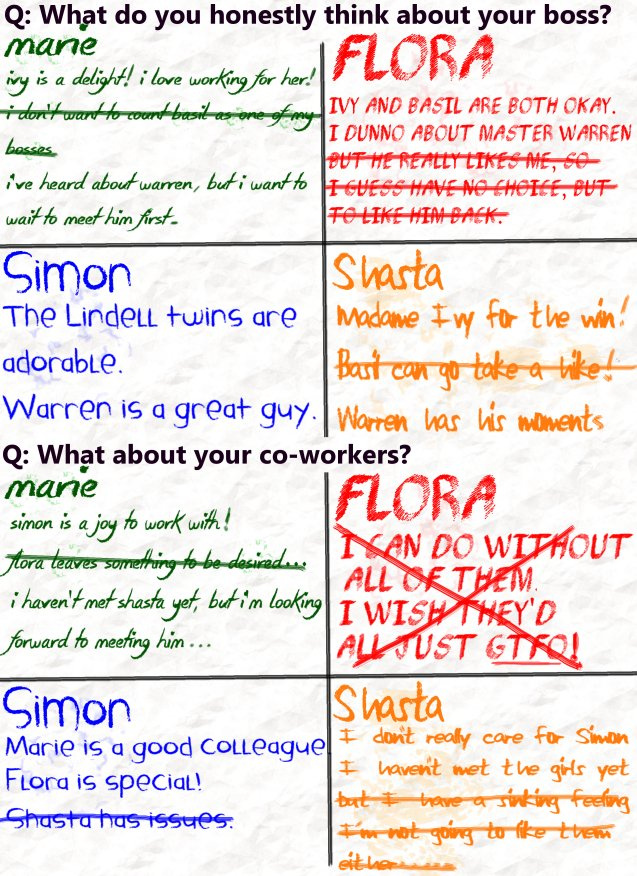 Q: What do you honestly think about your boss?
marie
ivy is a delight! i love working for her!
i don't want to count basil as one of my
bosses
i've heard about warren, but i want to
wait to meet him first.
FLORA
IVY AND BASIL ARE BOTH OKAY.
I DUNNO ABOUT MASTER WARREN
BUT HE REALLY LIKES ME, SO
I GUESS HAVE NO CHOICE, BUT
TO LIKE HIM BACK.
Simon
The Lindell twins are
adorable.
Warren is a great guy.
Shasta
Madame Ivy for the win!
Basil can go take a hike!
Warren has his moments
Q: What about your co-workers?
marie
simon is a joy to work with!
flora leaves something to be desired...
i haven't met shasta yet, but i'm looking
forward to meeting him...
FLORA
I CAN DO WITHOUT
ALL OF THEM.
I WISH THEY'D
ALL JUST GTFO!
Simon
Marie is a good colleague
Flora is special!
Shasta has issues.
Shasta
I don't really care for Simon
I haven't met the girls yet
but I have a sinking feeling
I'm not going to like them
either......